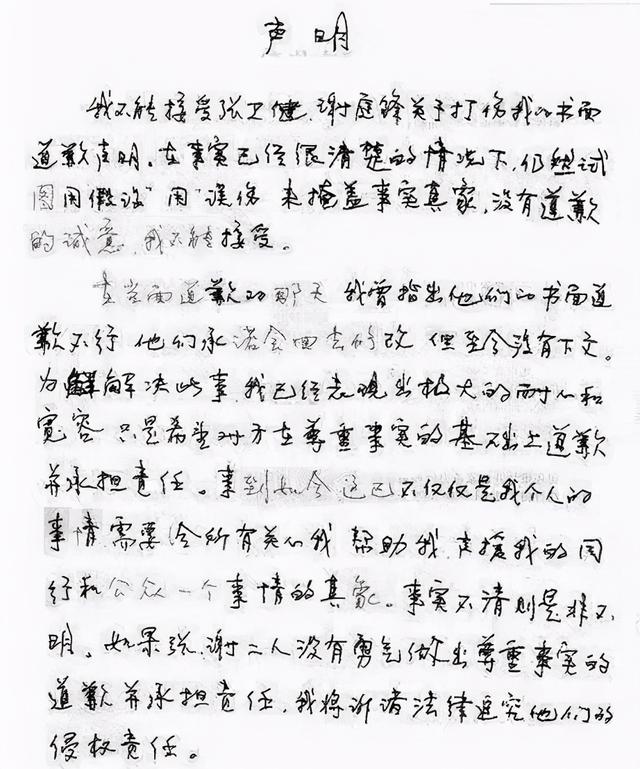 声明
我不能接受张卫健、谢庭锋关于打伤我的书面
道歉声明。在事实已经很清楚的情况下,仍然试
图用"假设"用"误伤"来掩盖事实真象,没有道歉
的诚意,我不能接受。
在当面道歉的那天 我曾指出他们的书面道
歉不行 他们承诺会回去修改 但至今没有下文。
为解解决此事,我已经表现出极大的耐心和
宽容 只是希望对方在尊重事实的基础上道歉
并承担责任。事到如今这已不仅仅是我个人的
事情,需要给所有关心我 帮助我,声援我的同
行和公众一个事情的真象。事实不清则是非不
明。如果张、谢二人没有勇气做出尊重事实的
道歉并承担责任,我将诉诸法律追究他们的
侵权责任。